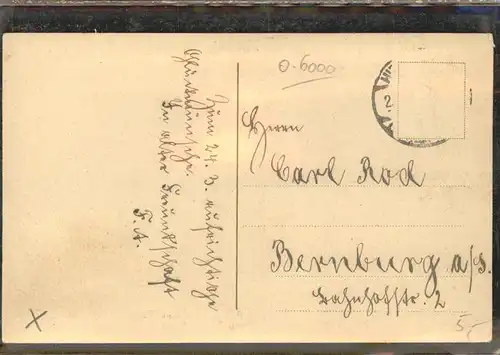 Zum 24. 3. aufrichtige
Glückwünsche.
In alter Freundschaft
F. A.
0-6000
2
Herrn
Carl Rod
Bernburg a/S.
Bahnhofstr. 2
5,-
X